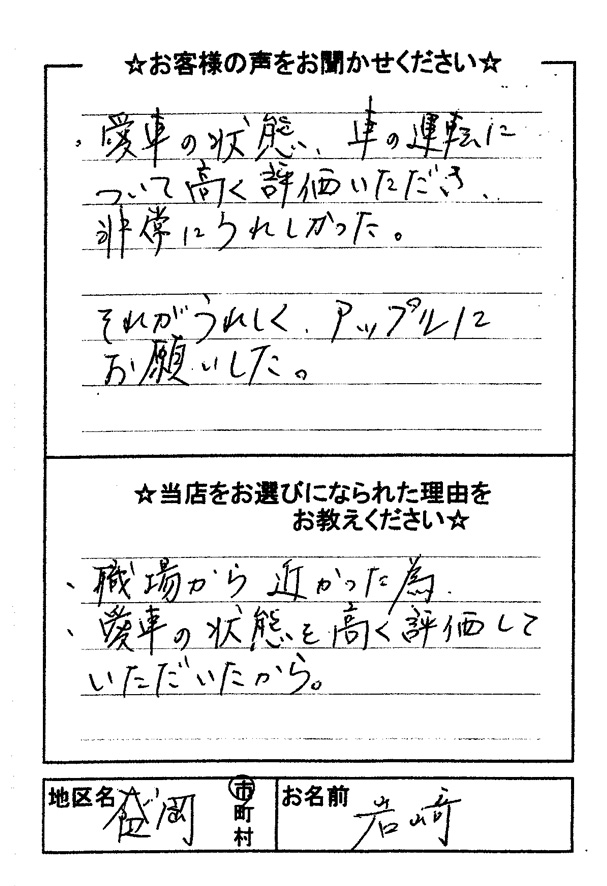 ☆お客様の声をお聞かせください☆
・愛車の状態、車の運転に
ついて高く評価いただき、
非常にうれしかった。
それがうれしく、アップルに
お願いした。
☆当店をお選びになられた理由を
お教えください☆
、職場から近かった為、
、愛車の状態を高く評価して
いただいたから。
地区名 盛岡 市町村
お名前 岩崎